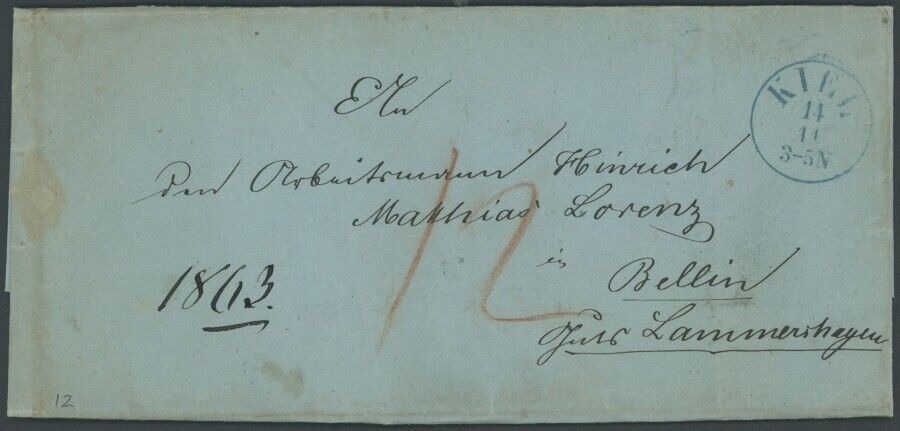 KIEL
14
11
3-5N
An
den Arbeitsmann Hinrich
Matthias Lorenz
in
Bellin
Guts Lammershagen
1863.
12
12